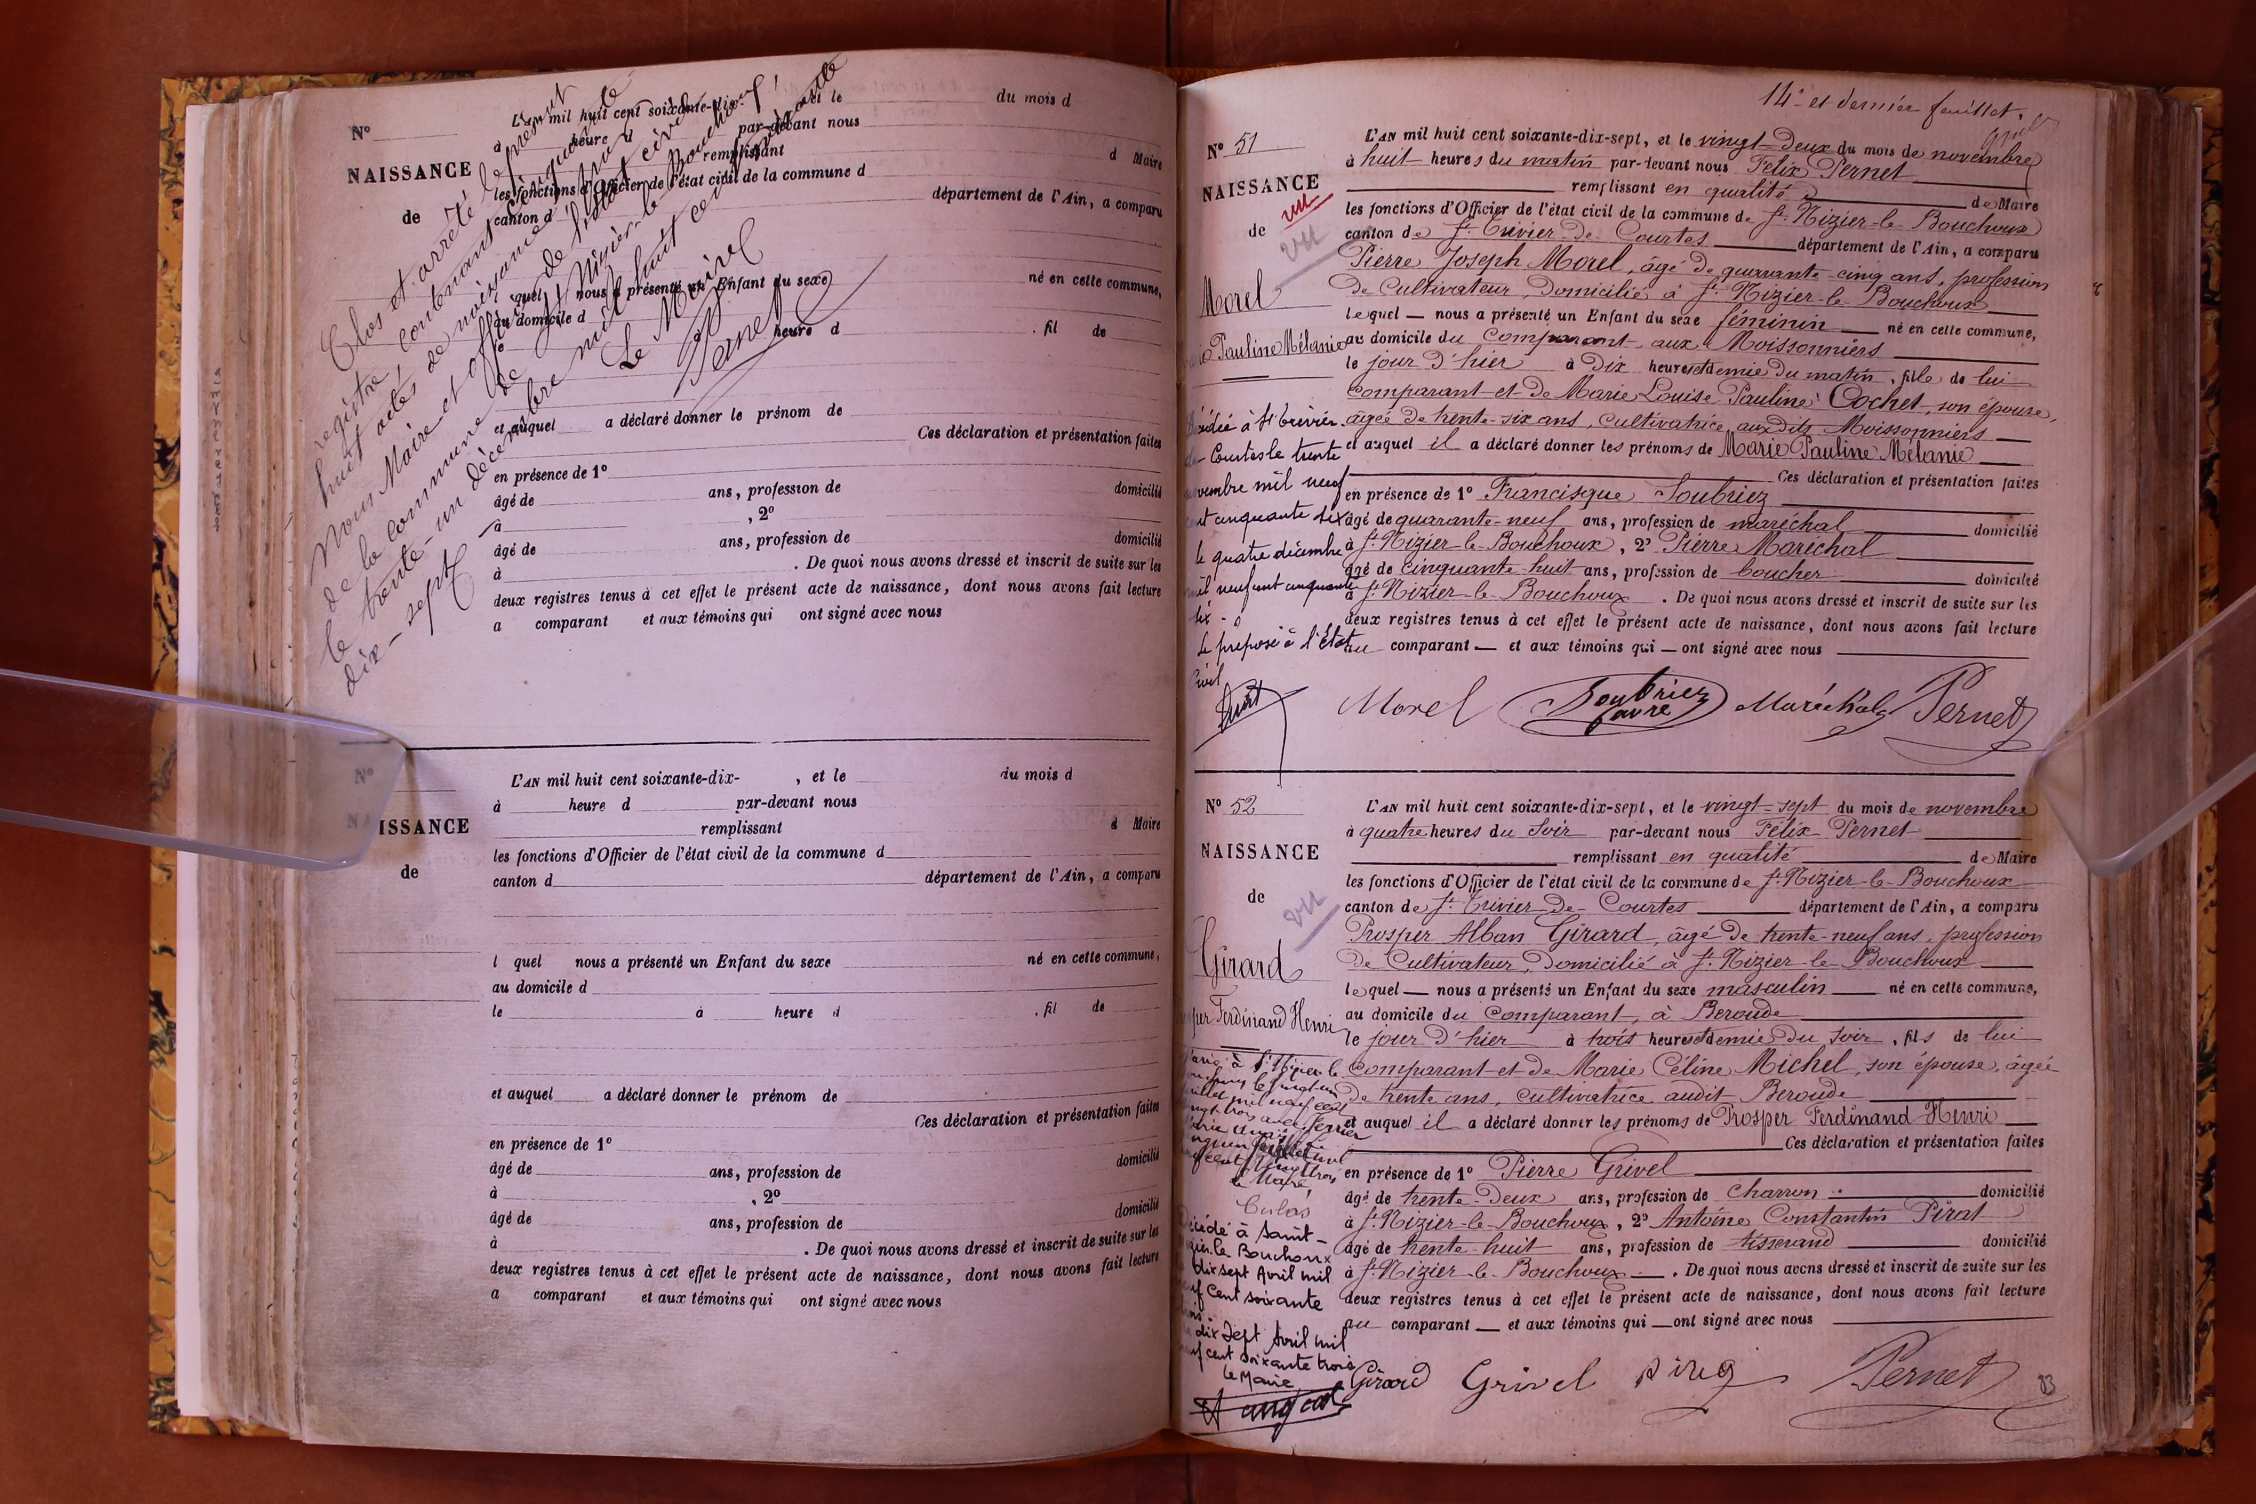 Nº
NAISSANCE
de
L'AN mil huit cent soixante-dix- et le du mois d
à heure d par-devant nous
remplissant d Maire
les fonctions d'Officier de l'état civil de la commune d
canton d département de l'Ain, a comparu
l quel nous a présenté un Enfant du sexe né en cette commune,
au domicile d
le heure d . fil de
et auquel a déclaré donner le prénom de
Ces déclaration et présentation faites
en présence de 1º
âgé de ans, profession de domicilié
à , 2º
âgé de ans, profession de domicilié
à . De quoi nous avons dressé et inscrit de suite sur les
deux registres tenus à cet effet le présent acte de naissance, dont nous avons fait lecture
a comparant et aux témoins qui ont signé avec nous
Clos et arrêté le présent
registre, contenant cinquante
huit actes de naissance, par
Nous Maire et officier de l'état civil
de la commune de St Nizier-le-Bouchoux
le trente-un décembre mil huit cent soixante
dix-sept
Le Maire
Pernet
Nº
NAISSANCE
de
L'AN mil huit cent soixante-dix- , et le du mois d
à heure d par-devant nous
remplissant d Maire
les fonctions d'Officier de l'état civil de la commune d
canton d département de l'Ain, a comparu
l quel nous a présenté un Enfant du sexe né en cette commune,
au domicile d
le à heure d . fil de
et auquel a déclaré donner le prénom de
Ces déclaration et présentation faites
en présence de 1º
âgé de ans, profession de domicilié
à , 2º
âgé de ans, profession de domicilié
à . De quoi nous avons dressé et inscrit de suite sur les
deux registres tenus à cet effet le présent acte de naissance, dont nous avons fait lecture
a comparant et aux témoins qui ont signé avec nous
14e et dernier feuillet.
Nº 51
NAISSANCE
vu
de
vu
Morel
Pauline Mélanie
à St Trivier
de Courtes le trente
novembre mil neuf
cent cinquante six
le quatre décembre
mil neuf cent cinquante
six
Le préposé à l'État
Civil
L'AN mil huit cent soixante-dix-sept, et le vingt-deux du mois de novembre
à huit heures du matin par-devant nous Félix Pernet
remplissant en qualité de Maire
les fonctions d'Officier de l'état civil de la commune de St Nizier-le-Bouchoux
canton de St Trivier-de-Courtes département de l'Ain, a comparu
Pierre Joseph Morel, âgé de quarante-cinq ans, profession
de Cultivateur, domicilié à St Nizier-le-Bouchoux
lequel nous a présenté un Enfant du sexe féminin né en cette commune,
au domicile du comparant aux Moissonniers
le jour d'hier à dix heures et demie du matin, fille de lui
comparant et de Marie Louise Pauline Cochet, son épouse,
âgée de trente-six ans, cultivatrice auxdits Moissonniers
et auquel il a déclaré donner les prénoms de Marie Pauline Mélanie
Ces déclaration et présentation faites
en présence de 1º Francisque Soubriez
âgé de quarante-neuf ans, profession de maréchal domicilié
à St Nizier-le-Bouchoux, 2º Pierre Maréchal
âgé de cinquante-huit ans, profession de boucher domicilié
à St Nizier-le-Bouchoux. De quoi nous avons dressé et inscrit de suite sur les
deux registres tenus à cet effet le présent acte de naissance, dont nous avons fait lecture
au comparant et aux témoins qui ont signé avec nous
Morel Soubriez Maréchal Pernet
Nº 52
NAISSANCE
de
vu
Girard
Ferdinand Henri
L'AN mil huit cent soixante-dix-sept, et le vingt-sept du mois de novembre
à quatre heures du soir par-devant nous Félix Pernet
remplissant en qualité de Maire
les fonctions d'Officier de l'état civil de la commune de St Nizier-le-Bouchoux
canton de St Trivier-de-Courtes département de l'Ain, a comparu
Prosper Alban Girard, âgé de trente-neuf ans, profession
de Cultivateur, domicilié à St Nizier-le-Bouchoux
lequel nous a présenté un Enfant du sexe masculin né en cette commune,
au domicile du comparant, à Beroude
le jour d'hier à trois heures et demie du soir, fils de lui
comparant et de Marie Céline Michel, son épouse, âgée
de trente ans, cultivatrice audit Beroude
et auquel il a déclaré donner les prénoms de Prosper Ferdinand Henri
Ces déclaration et présentation faites
en présence de 1º Pierre Grivel
âgé de trente-deux ans, profession de charron domicilié
à St Nizier-le-Bouchoux, 2º Antoine Constantin Pirat
âgé de trente-huit ans, profession de tisserand domicilié
à St Nizier-le-Bouchoux. De quoi nous avons dressé et inscrit de suite sur les
deux registres tenus à cet effet le présent acte de naissance, dont nous avons fait lecture
au comparant et aux témoins qui ont signé avec nous
à St Nizier le
Le Maire
Décédé à Saint-
Nizier le Bouchoux
dix sept Avril mil
neuf cent soixante
trois.
dix sept Avril mil
neuf cent soixante trois
Le Maire
Girard Grivel Pirat Pernet